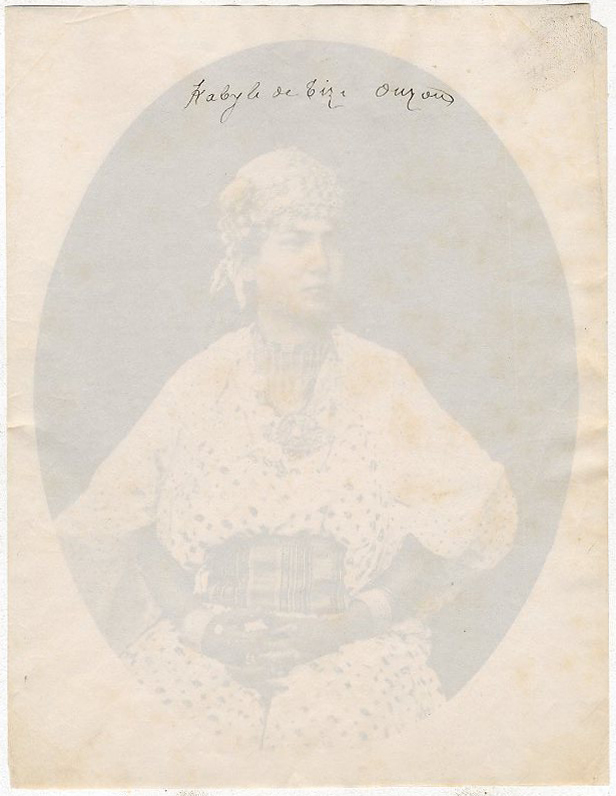 Kabyle de Tizi Ouzou